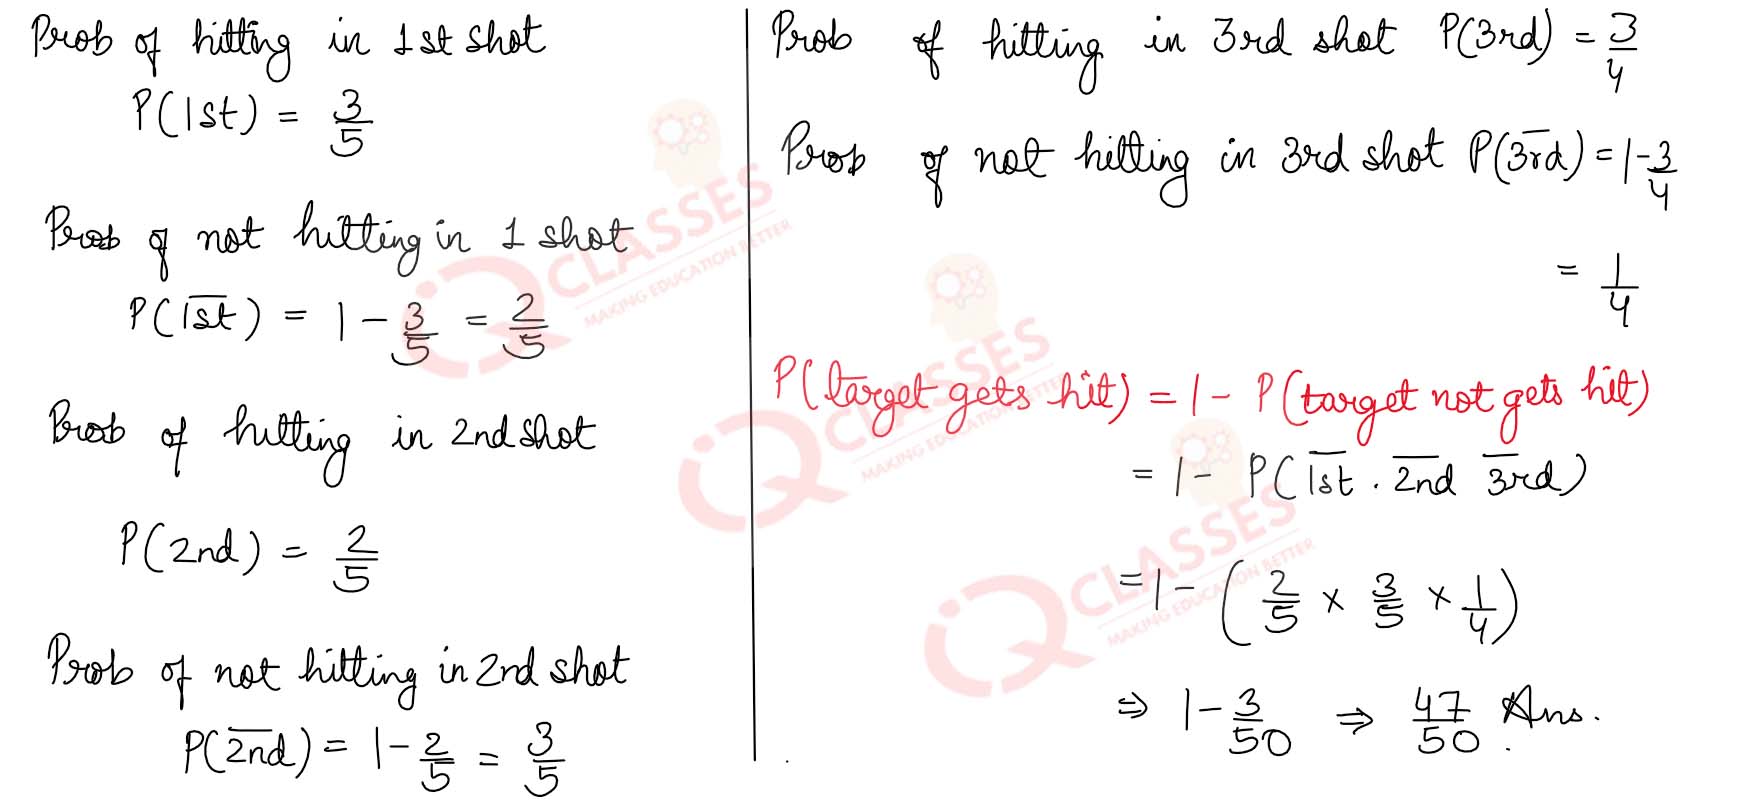 Prob of hitting in 1st shot
P(1st) = 3/5
Prob of not hitting in 1 shot
P(1̅s̅t̅) = 1 - 3/5 = 2/5
Prob of hitting in 2nd shot
P(2nd) = 2/5
Prob of not hitting in 2nd shot
P(2̅n̅d̅) = 1 - 2/5 = 3/5
Prob of hitting in 3rd shot P(3rd) = 3/4
Prob of not hitting in 3rd shot P(3̅r̅d̅) = 1 - 3/4
= 1/4
P(target gets hit) = 1 - P(target not gets hit)
= 1 - P(1̅s̅t̅ . 2̅n̅d̅ 3̅r̅d̅)
= 1 - (2/5 × 3/5 × 1/4)
⇒ 1 - 3/50 ⇒ 47/50 Ans.
IQ CLASSES
MAKING EDUCATION BETTER
IQ CLASSES
MAKING EDUCATION BETTER
IQ CLASSES
MAKING EDUCATION BETTER